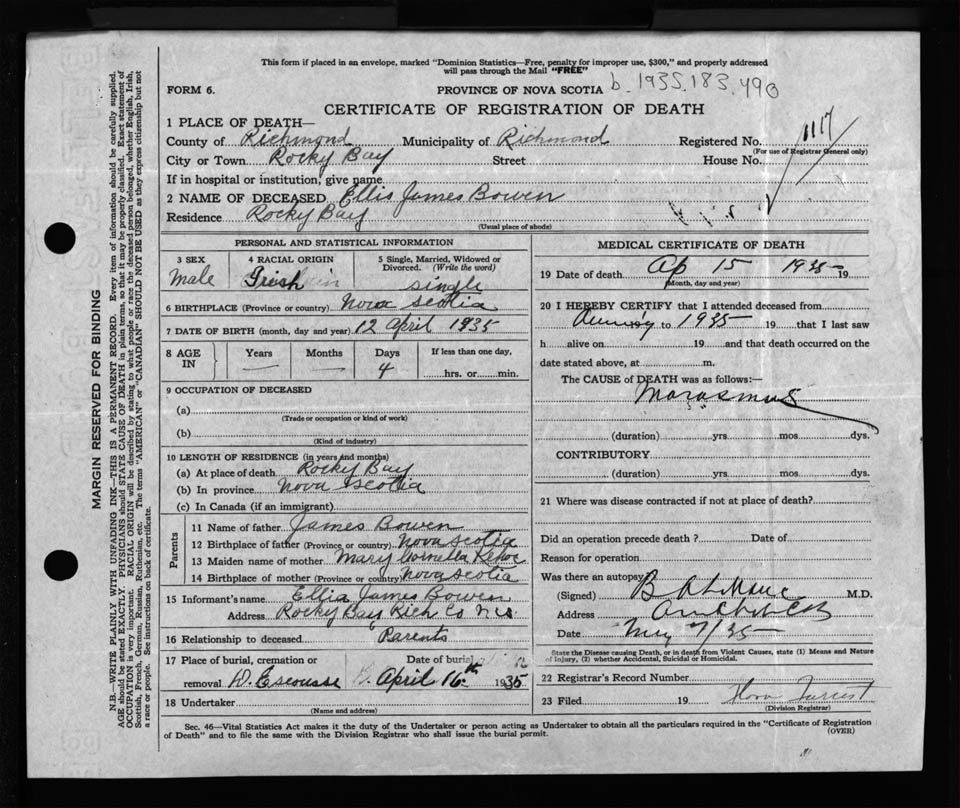 This form if placed in an envelope, marked "Dominion Statistics—Free, penalty for improper use, $300," and properly addressed
will pass through the Mail "FREE"
FORM 6.
PROVINCE OF NOVA SCOTIA b. 1935.183.490
CERTIFICATE OF REGISTRATION OF DEATH
1 PLACE OF DEATH—
County of Richmond Municipality of Richmond Registered No. 1117
(For use of Registrar General only)
City or Town Rocky Bay Street House No.
If in hospital or institution, give name
2 NAME OF DECEASED Ellis James Bowen
Residence Rocky Bay
(Usual place of abode)
PERSONAL AND STATISTICAL INFORMATION
3 SEX 4 RACIAL ORIGIN 5 Single, Married, Widowed or
Divorced. (Write the word)
Male Irish single
6 BIRTHPLACE (Province or country) Nova Scotia
7 DATE OF BIRTH (month, day and year) 12 April 1935
8 AGE IN Years Months Days If less than one day,
4 hrs. or min.
9 OCCUPATION OF DECEASED
(a)
(Trade or occupation or kind of work)
(b)
(Kind of industry)
10 LENGTH OF RESIDENCE (in years and months)
(a) At place of death Rocky Bay
(b) In province Nova Scotia
(c) In Canada (if an immigrant)
Parents
11 Name of father James Bowen
12 Birthplace of father (Province or country) Nova Scotia
13 Maiden name of mother Mary Kehoe
14 Birthplace of mother (Province or country) Nova Scotia
15 Informant's name Ellis James Bowen
Address Rocky Bay Rich Co N.S.
16 Relationship to deceased Parents
17 Place of burial, cremation or Date of burial
removal D. Escousse April 16th 1935
18 Undertaker
(Name and address)
MEDICAL CERTIFICATE OF DEATH
19 Date of death Ap 15 1935 19
(Month, day and year)
20 I HEREBY CERTIFY that I attended deceased from
to 1935 19 that I last saw
h alive on 19 and that death occurred on the
date stated above, at m.
The CAUSE of DEATH was as follows:—
Marasmus
(duration) yrs mos dys.
CONTRIBUTORY
(duration) yrs mos dys.
21 Where was disease contracted if not at place of death?
Did an operation precede death ? Date of
Reason for operation
Was there an autopsy
(Signed) M.D.
Address
Date May 7/35
State the Disease causing Death, or in death from Violent Causes, state (1) Means and Nature
of Injury, (2) whether Accidental, Suicidal or Homicidal.
22 Registrar's Record Number
23 Filed 19 Flora
(Division Registrar)
Sec. 46—Vital Statistics Act makes it the duty of the Undertaker or person acting as Undertaker to obtain all the particulars required in the "Certificate of Registration
of Death" and to file the same with the Division Registrar who shall issue the burial permit.
(OVER)
MARGIN RESERVED FOR BINDING
N.B.—WRITE PLAINLY WITH UNFADING INK—THIS IS A PERMANENT RECORD. Every item of information should be carefully supplied.
AGE should be stated EXACTLY. PHYSICIANS should STATE CAUSE OF DEATH in plain terms, so that it may be properly classified. Exact statement of
OCCUPATION is very important. RACIAL ORIGIN will be described by stating to what people or race the deceased person belonged, whether English, Irish,
Scottish, French, German, Russian, Ruthenian, etc. The terms "AMERICAN" or "CANADIAN" SHOULD NOT BE USED as they express citizenship but not
a race or people. See instructions on back of certificate.